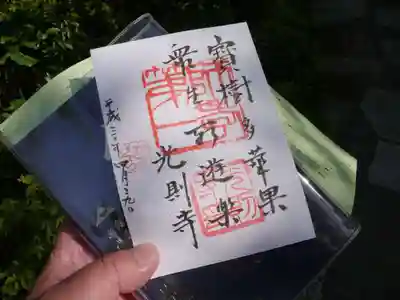 寶樹多華果
衆生所遊樂
光則寺
平成三十年四月二九日